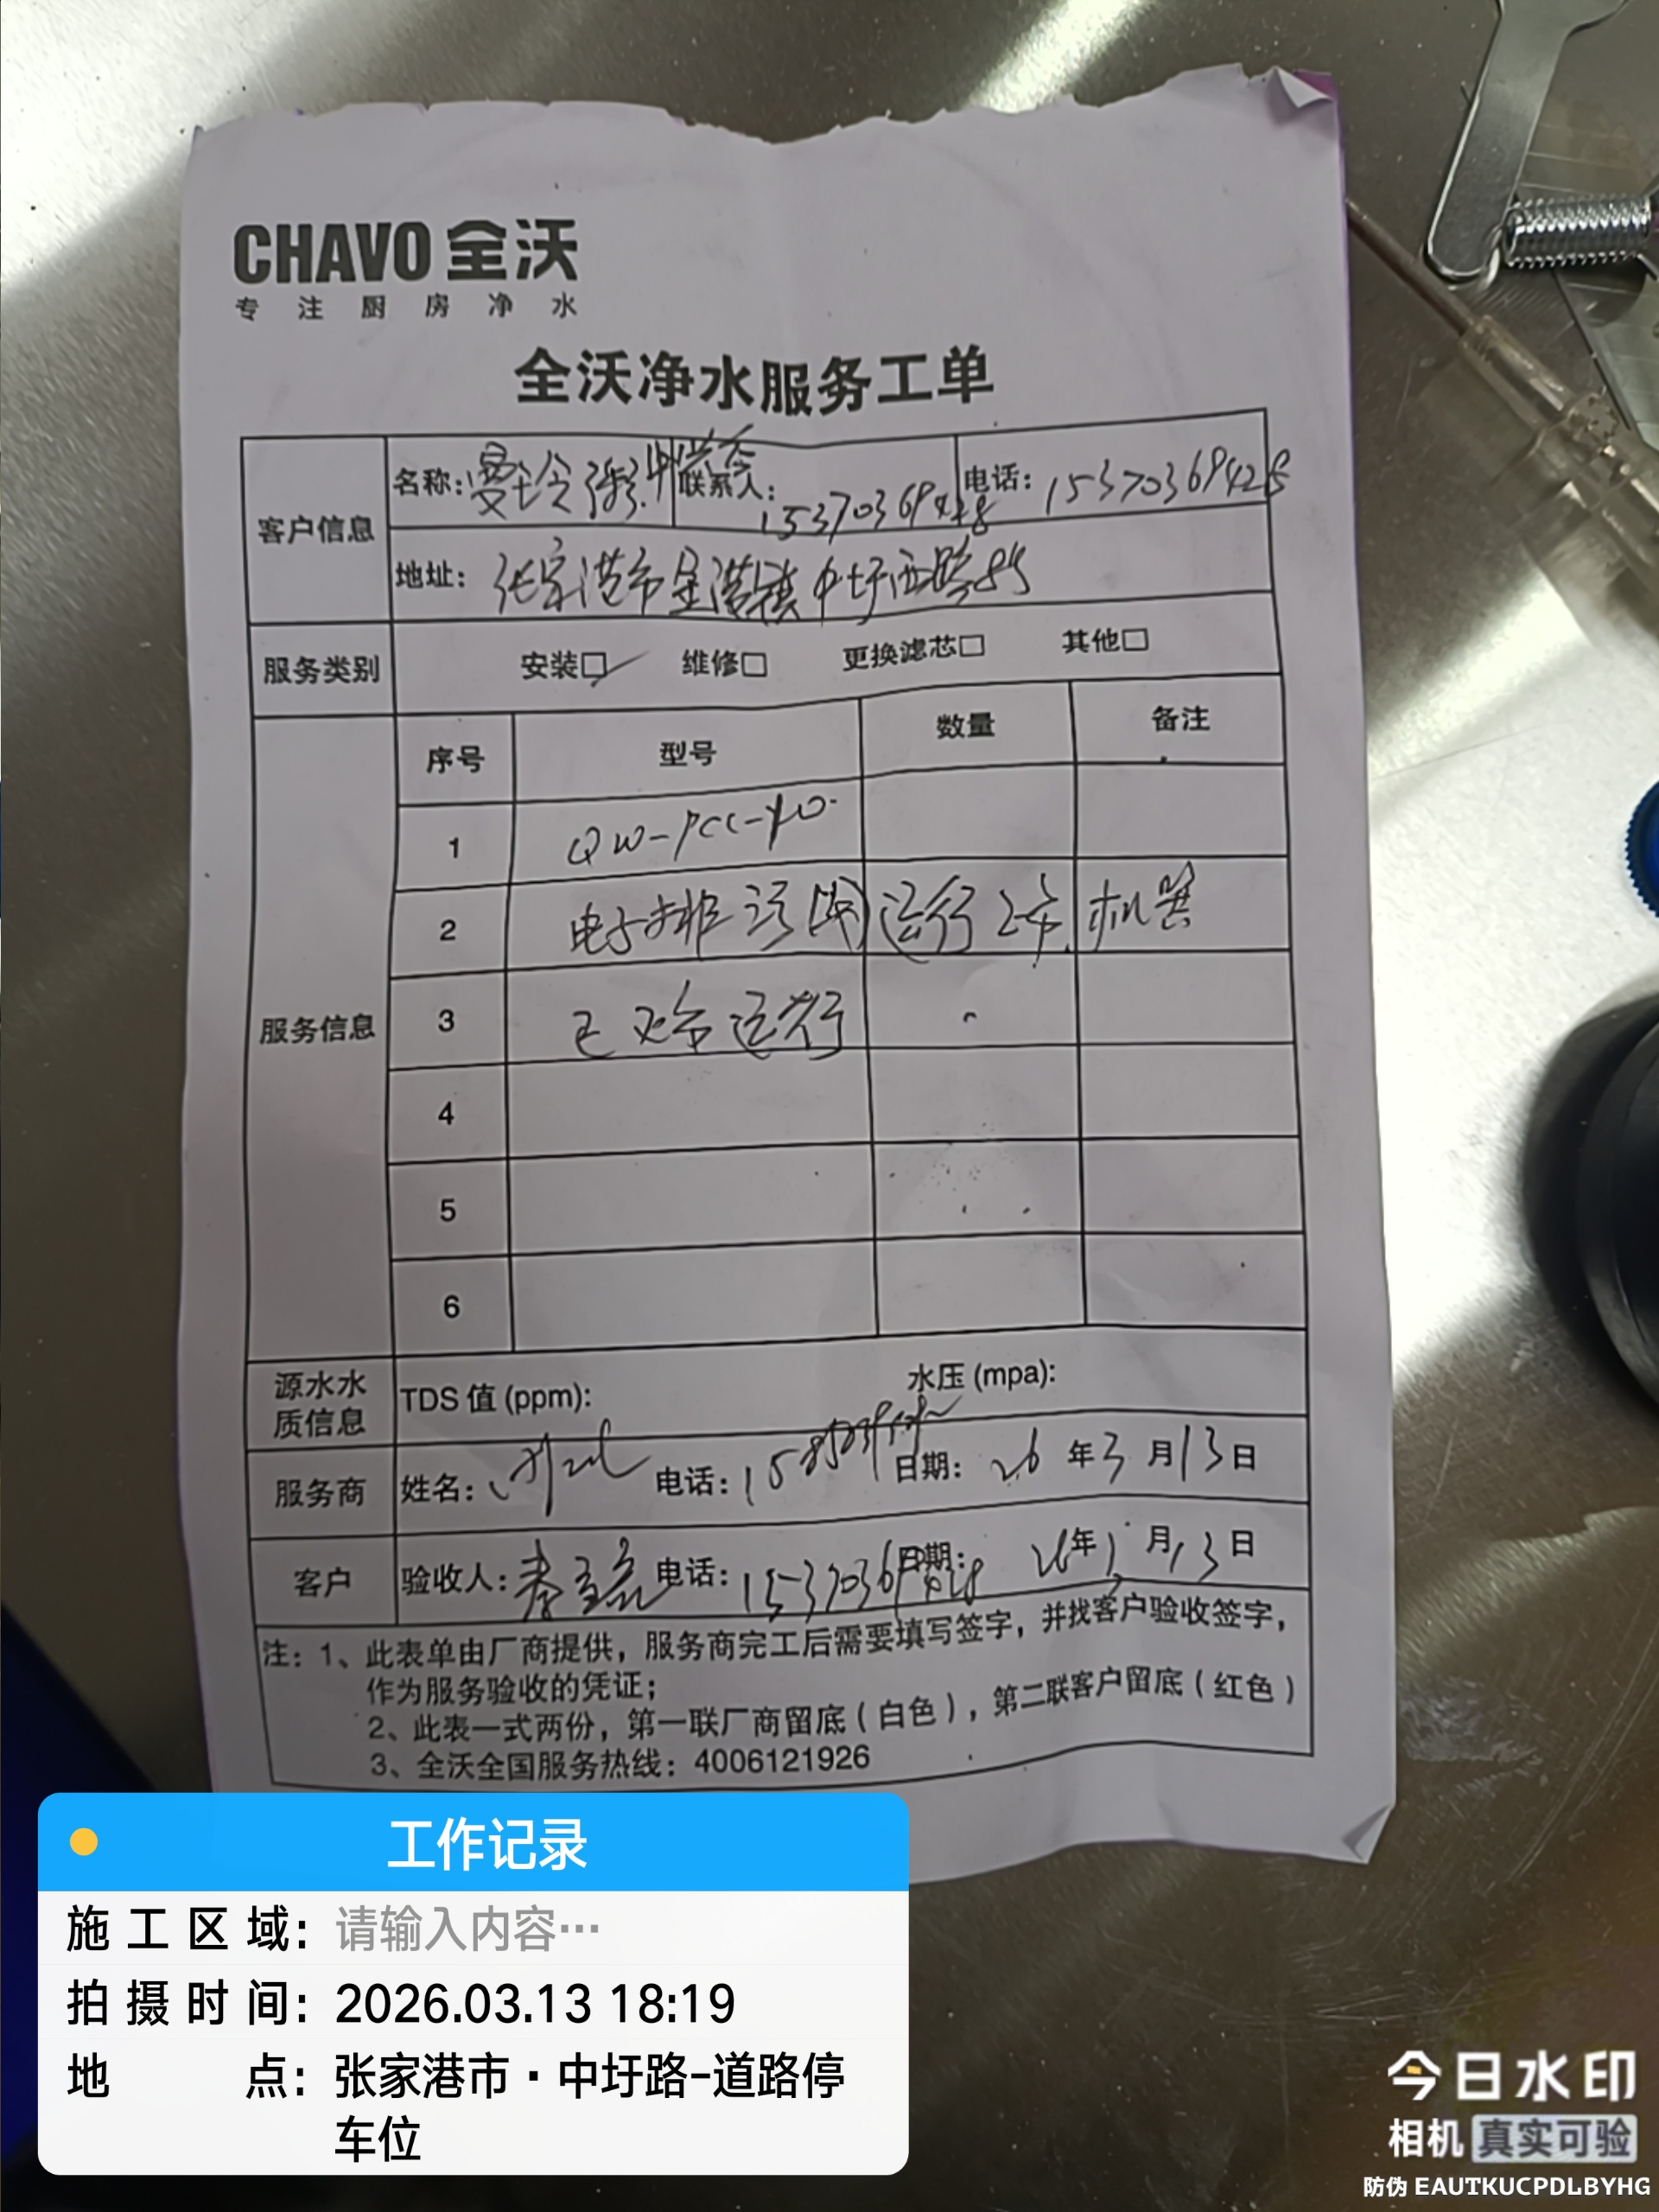 CHAVO 全沃
专注厨房净水
全沃净水服务工单
客户信息
名称: 联系人: 15370369428 电话: 15370369428
地址: 张家港市金港镇中圩西路85
服务类别 安装□✓ 维修□ 更换滤芯□ 其他□
服务信息
序号 型号 数量 备注
1 QW-
2 电子排污阀 运行 机器
3 已 运行
4
5
6
源水水质信息 TDS 值 (ppm): 水压 (mpa):
服务商 姓名: 电话: 日期: 26 年 3 月 13 日
客户 验收人: 电话: 15370369428 日期: 26 年 3 月 13 日
注: 1、此表单由厂商提供，服务商完工后需要填写签字，并找客户验收签字，
作为服务验收的凭证；
2、此表一式两份，第一联厂商留底（白色），第二联客户留底（红色）
3、全沃全国服务热线：4006121926
工作记录
施工区域: 请输入内容…
拍摄时间: 2026.03.13 18:19
地点: 张家港市·中圩路-道路停
车位
今日水印
相机 真实可验
防伪 EAUTKUCPDLBYHG